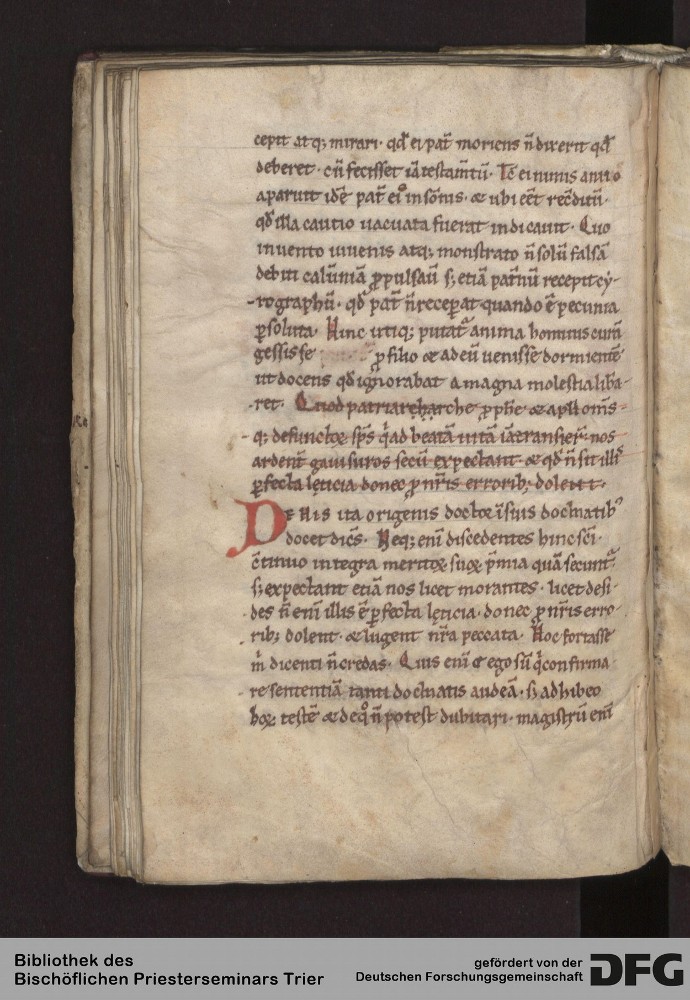 cepit atq; mirari · qđ ei pat̄ moriens n̄ dixerit qđ
deberet · c̄ n̄ fecisset iā testam̄tū · Tc̄ ei nimis anxio
aparuit idē pat̄ ei᷒ in sōnis · & ubi eēt rec̄ditū ·
qđ illa cautio uacuata fuerat indicauit · Quo
inuento iuuenis atq; monstrato n̄ solū falsā
debiti calūniā ꝓpulsau̅ s; etiā pat̄nū recepit cy-
rographū · qđ pat̄ n̄ receperat quando ē pecunia
ꝑsoluta · Hinc utiq; putat̄ anima hominis curā
gessisse ꝓ filio & ad eū uenisse dormientē
ut docens qđ ignorabat a magna molestia liba-
ret · Quod patriarche ꝓphe & apl̄i om̄s-
q; defunctoꝝ sp̄s q̄ ad beatā uitā iā transier̄ · nos
ardent̄ gauisuros secū expectant & qđ n̄ sit illis
ꝑfecta lęticia donec ꝓ nr̄is errorib; dolent ·
DE His ita origenis doctoꝝ īsius docmatib᷒
docet dics̄ · Neq; enī discedentes hinc sc̄i ·
c̄tinuo integra meritoꝝ suoꝝ p̄mia
s; expectant etiā nos licet morantes · licet desi-
des n̄ enī illis ē ꝑfecta lęticia · donec ꝓ nr̄is erro-
rib; dolent · & lugent nr̄a peccata · Hoc fortasse
m̄ dicenti n̄ credas · Quis enī ego sū q̄ confirma-
re sententiā tanti docmatis audeā · s; adhibeo
hoꝝ testē & de q̊ n̄ potest dubitari · magistrū enī
Bibliothek des
Bischöflichen Priesterseminars Trier
gefördert von der
Deutschen Forschungsgemeinschaft
DFG